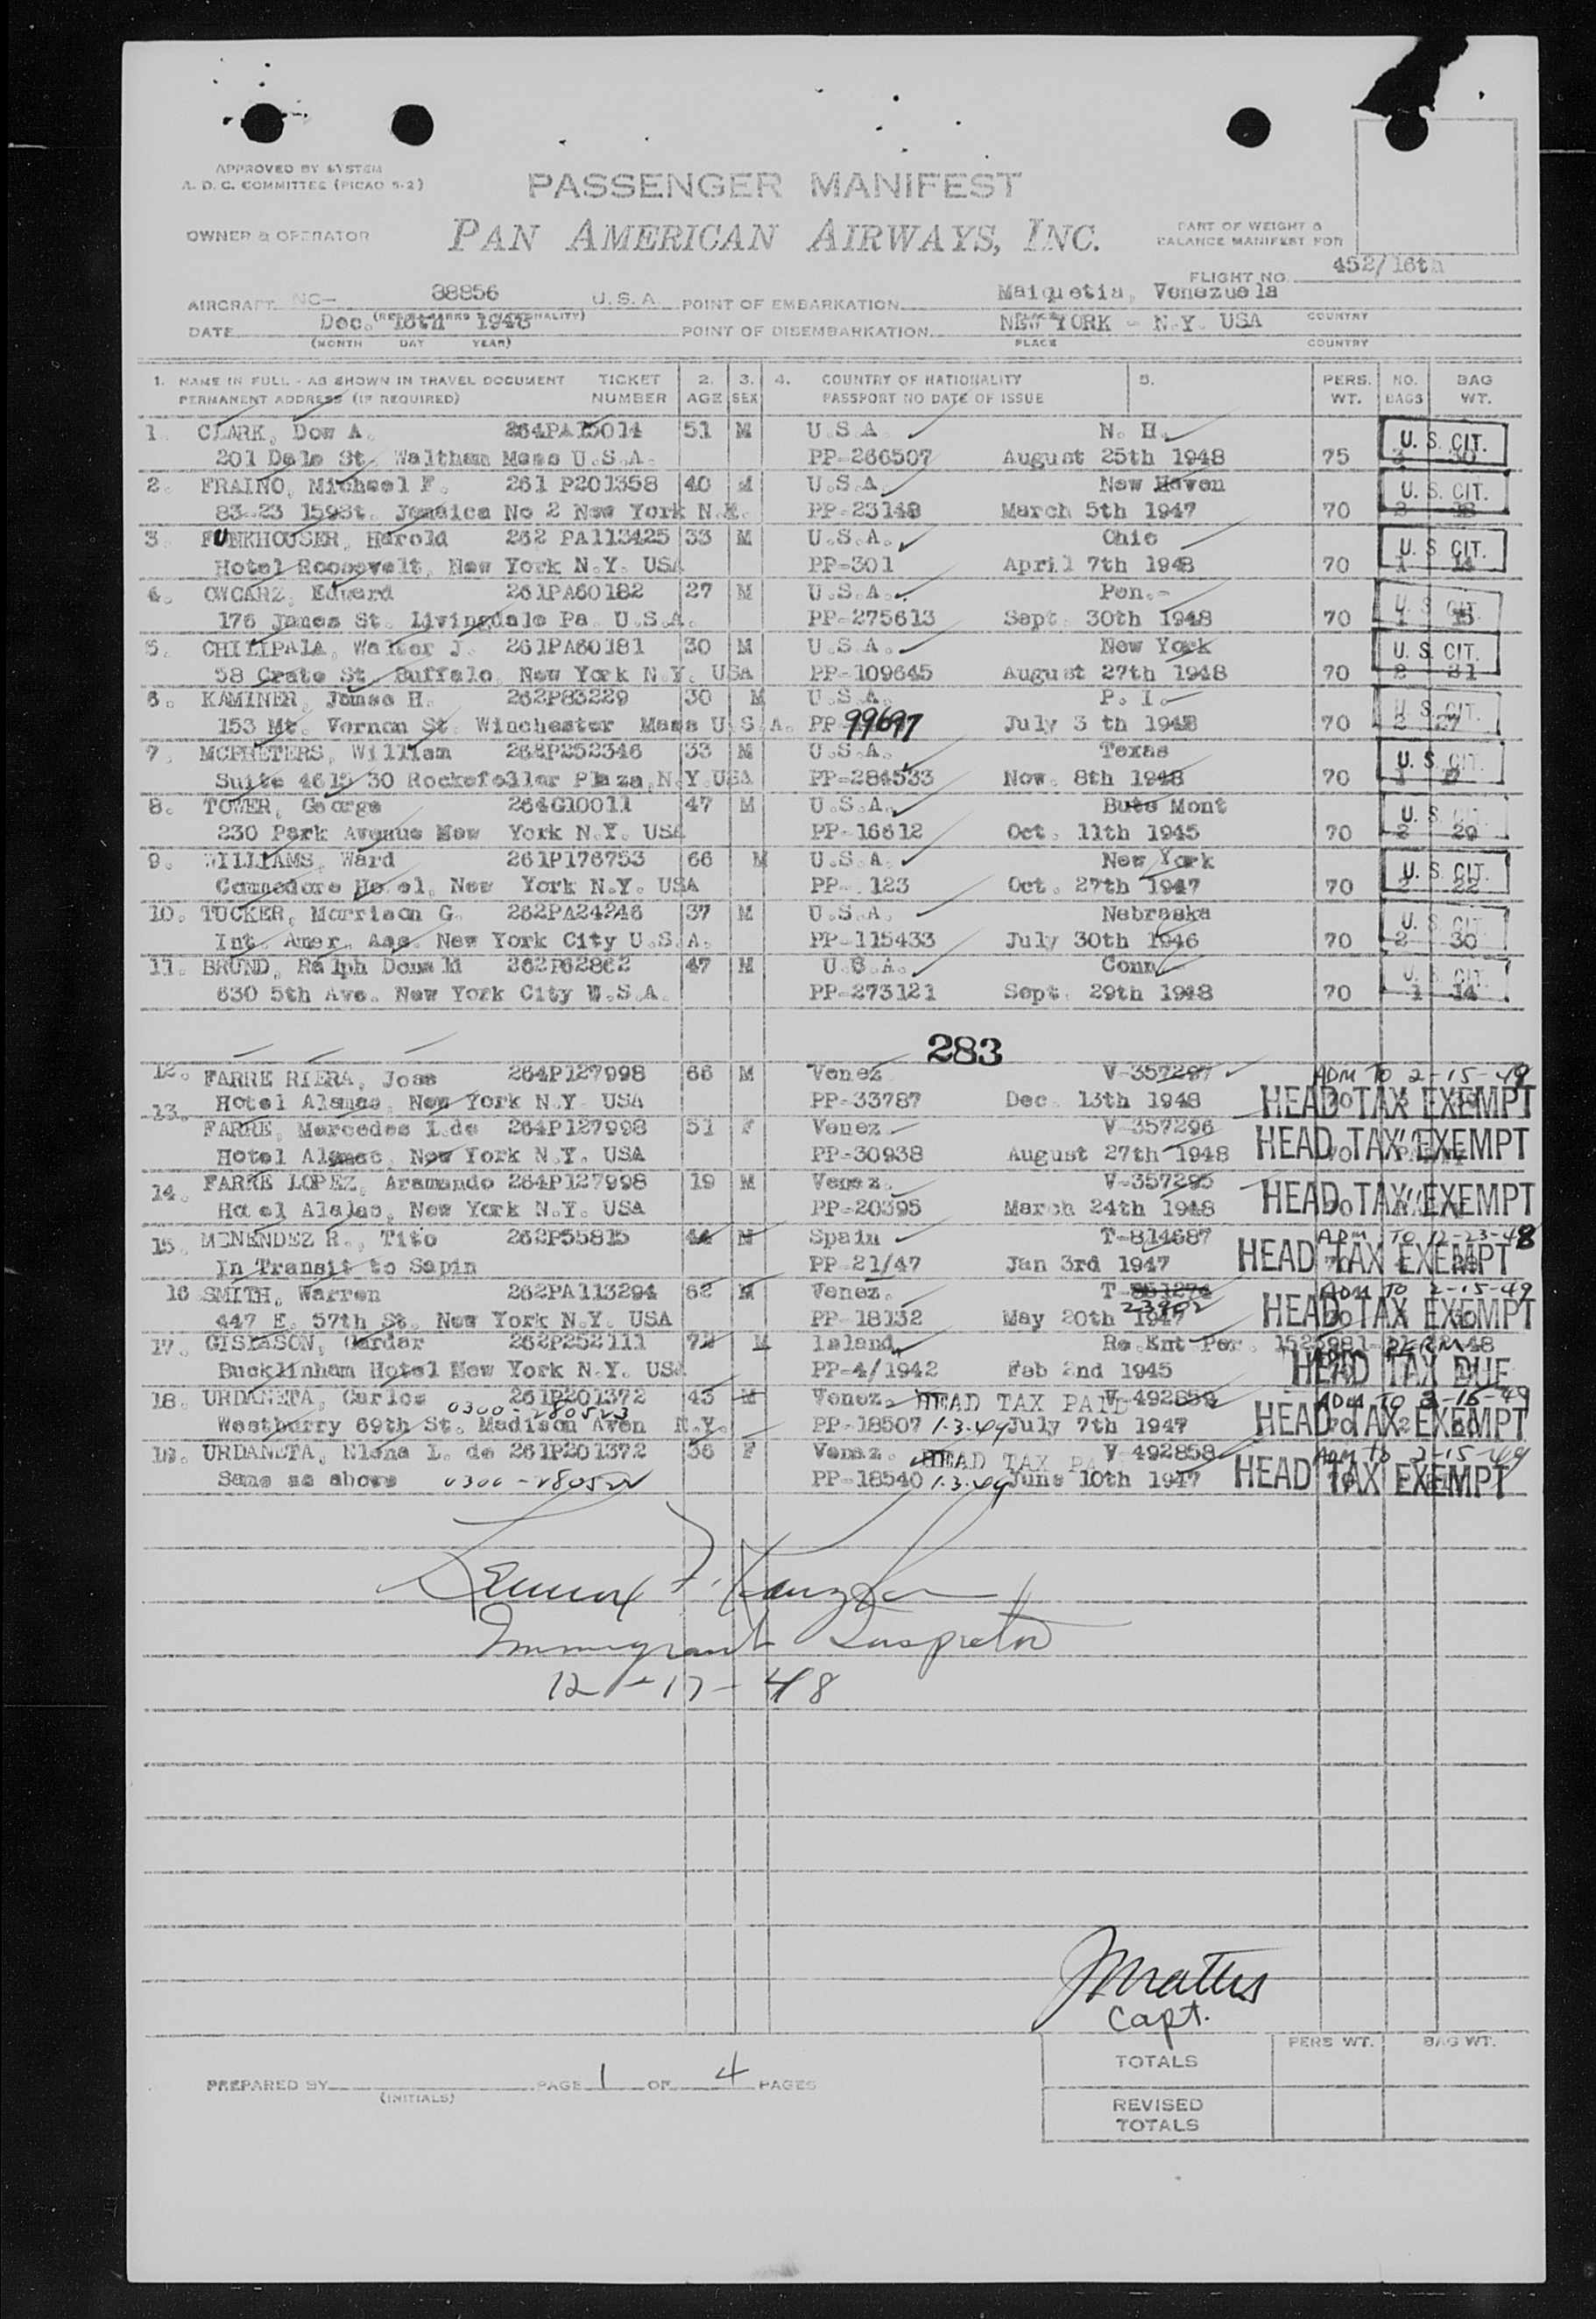 APPROVED BY SYSTEM
A. D. C. COMMITTEE (PICAO 5-2)
PASSENGER MANIFEST
OWNER & OPERATOR
PAN AMERICAN AIRWAYS, INC.
PART OF WEIGHT &
BALANCE MANIFEST FOR
FLIGHT NO. 452/16th
AIRCRAFT NC- 88956 U.S.A. POINT OF EMBARKATION Maiquetia, Venezuela
PLACE COUNTRY
DATE Dec. 16th 1948 POINT OF DISEMBARKATION NEW YORK - N.Y. USA
(MONTH DAY YEAR) PLACE COUNTRY
1. NAME IN FULL - AS SHOWN IN TRAVEL DOCUMENT TICKET 2. 3. 4. COUNTRY OF NATIONALITY 5. PERS. NO. BAG
PERMANENT ADDRESS (IF REQUIRED) NUMBER AGE SEX PASSPORT NO DATE OF ISSUE WT. BAGS WT.
1. CLARK, Dow A. 264PA15014 51 M U.S.A N. H. U. S. CIT.
201 Dale St. Waltham Mass U.S.A. PP-266507 August 25th 1948 75 3 30
2. FRAINO, Michael F. 261 P201358 40 M U.S.A. New Haven U. S. CIT.
83-23 159St. Jamaica No 2 New York N.Y. PP-23148 March 5th 1947 70 2 18
3. FUNKHOUSER, Harold 262 PA113425 33 M U.S.A. Ohio U. S. CIT.
Hotel Roosevelt, New York N.Y. USA PP-301 April 7th 1948 70 1 14
4. OWCARZ, Edward 261PA60182 27 M U.S.A. Pen.- U. S. CIT.
176 Jones St. Livingdale Pa. U.S.A. PP-275613 Sept. 30th 1948 70 1 15
5. CHILIPALA, Walter J. 261PA60181 30 M U.S.A. New York U. S. CIT.
58 Crate St. Buffalo, New York N.Y. USA PP-109645 August 27th 1948 70 2 31
6. KAMINER, James H. 262P83229 30 M U.S.A. P. I. U. S. CIT.
153 Mt. Vernon St. Winchester Mass U.S.A. PP 99697 July 3 th 1948 70 2 27
7. MCPHETERS, William 268P252346 33 M U.S.A. Texas U. S. CIT.
Suite 4615 30 Rockefeller Plaza, N.Y USA PP-284533 Nov. 8th 1948 70 1
8. TOWER, George 264G10011 47 M U.S.A. Bute Mont U. S. CIT.
230 Park Avenue New York N.Y. USA PP-16612 Oct. 11th 1945 70 2 29
9. WILLIAMS, Ward 261P176753 66 M U.S.A. New York U. S. CIT.
Commodore Hotel, New York N.Y. USA PP- 123 Oct. 27th 1947 70 2 22
10. TUCKER, Morrison G. 262PA24246 37 M U.S.A. Nebraska U. S. CIT.
Int. Amer. Ass. New York City U.S.A. PP-115433 July 30th 1946 70 2 30
11. BRUND, Ralph Donald 262P62862 47 M U.S.A. Conn U. S. CIT.
630 5th Ave. New York City U.S.A. PP-273121 Sept. 29th 1948 70 1 14
283
12. FARRE RIERA, Jose 264P127998 66 M Venez V-357297 ADM TO 2-15-49
Hotel Alamac, New York N.Y USA PP-33787 Dec 13th 1948 HEAD TAX EXEMPT
13. FARRE, Mercedes L.de 264P127998 51 F Venez V-357296
Hotel Alamac, New York N.Y. USA PP-30938 August 27th 1948 HEAD TAX EXEMPT
14. FARRE LOPEZ, Aramando 264P127998 19 M Venez. V-357295
Hotel Alalac, New York N.Y. USA PP-20395 March 24th 1948 HEAD TAX EXEMPT
15. MENENDEZ R., Tito 262P55815 44 M Spain T-814687 ADM TO 12-23-48
In Transit to Sapin PP-21/47 Jan 3rd 1947 HEAD TAX EXEMPT
16 SMITH, Warren 262PA113294 62 M Venez. T-551274 ADM TO 2-15-49
23902
447 E. 57th St. New York N.Y. USA PP-18132 May 20th 1947 HEAD TAX EXEMPT
17. GISLASON, Gardar 262P252111 72 M Island Re.Ent Per. PERM
Bucklinham Hotel New York N.Y. USA PP-4/1942 Feb 2nd 1945 HEAD TAX DUE
18. URDANETA, Carlos 261P201372 43 M Venez. HEAD TAX PAID V-492859 ADM TO 2-15-49
0300-280523
Westburry 69th St. Madison Aven N.Y. PP-18507 1-3-49 July 7th 1947 HEAD TAX EXEMPT
19. URDANETA, Elena L. de 261P201372 36 F Venez. HEAD TAX PA V 492858 ADM TO 2-15-49
Same as above 0300-280522 PP-18540 1-3-49 June 10th 1947 HEAD TAX EXEMPT
Immigrant Inspector
12-17-48
Capt.
PERS WT. BAG WT.
TOTALS
PREPARED BY PAGE 1 OF 4 PAGES
(INITIALS)
REVISED
TOTALS